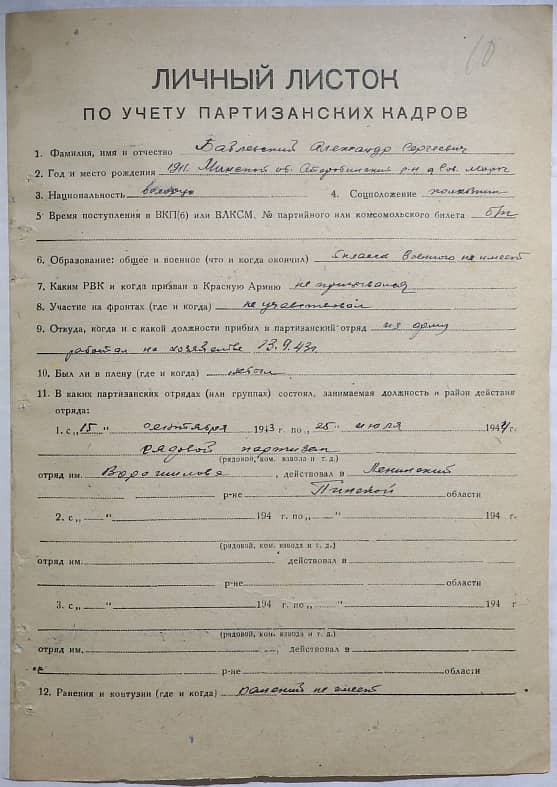 10
ЛИЧНЫЙ ЛИСТОК
ПО УЧЕТУ ПАРТИЗАНСКИХ КАДРОВ
1. Фамилия, имя и отчество Александр Сергеевич
2. Год и место рождения 1911. Минской об. Старобинский р-н д.
3. Национальность 4. Соцположение
5 Время поступления в ВКП(б) или ВЛКСМ, № партийного или комсомольского билета б/п
6. Образование: общее и военное (что и когда окончил) класса военного не имеет
7. Каким РВК и когда призван в Красную Армию не призывался
8. Участие на фронтах (где и когда) не участвовал
9. Откуда, когда и с какой должности прибыл в партизанский отряд из дому
работал на хозяйстве 13.9.43г.
10. Был ли в плену (где и когда) не был
11. В каких партизанских отрядах (или группах) состоял, занимаемая должность и район действия
отряда:
1. с „15" сентября 1943 г. по „25" июля 1944г.
рядовой партизан
(рядовой, ком. взвода и т. д.)
отряд им. Ворошилова, действовал в Ленинский
р-не Пинской области
2. с „ " 194 г. по „ " 194 г.
(рядовой, ком. взвода и т. д.)
отряд им. действовал в
р-не области
3. с „ " 194 г. по „ " 194 г
(рядовой, ком. взвода и т. д.)
отряд им. действовал в
р-не области
12. Ранения и контузии (где и когда) ранений не имеет